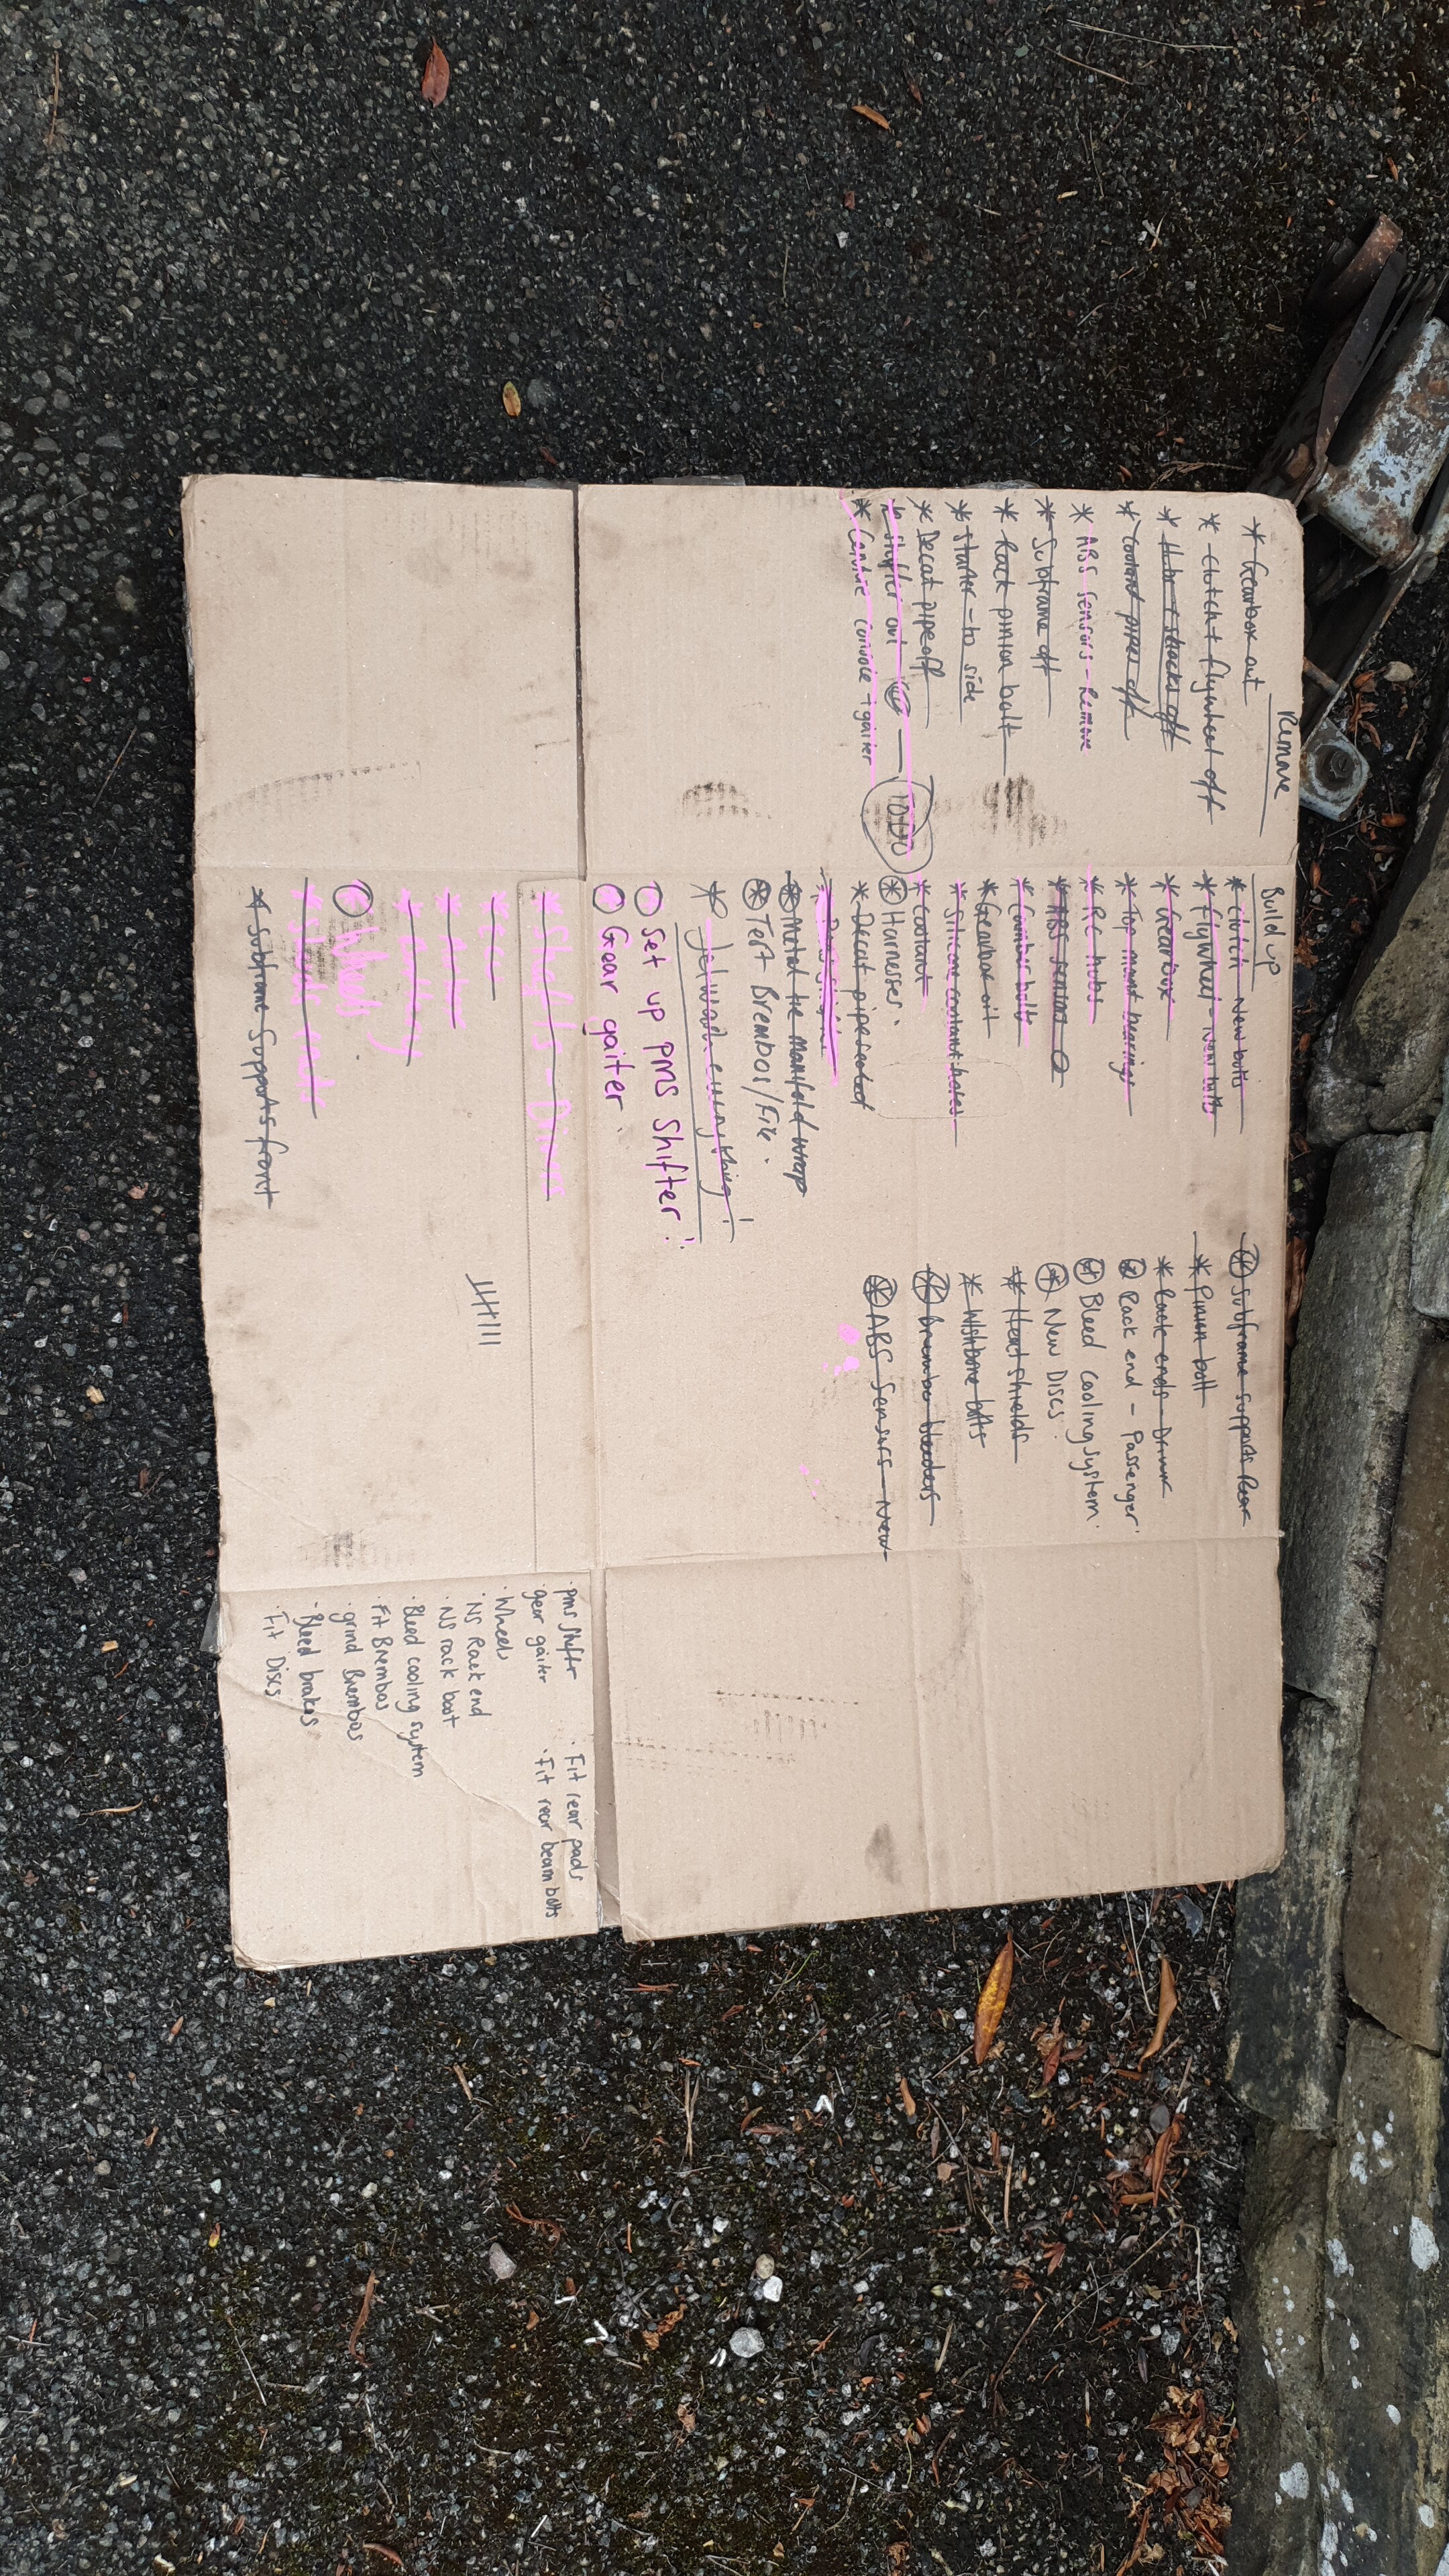 Remove
* Gearbox out
* Clutch + flywheel off
* Hubs + shocks off
* coolant pipes off
* ABS sensors - Remove
* Subframe off
* Rack pinion bolt
* Starter - to side
* Decat pipe off
* Shifter out
* Centre console + gaiter
TODO
Build up
* clutch - New bolts
* flywheel - New bolts
* Gearbox
* Top mount bearings
* RC hubs
* ABS sensors
* Camber bolts
* Gearbox oil
* Silicone coolant hoses
* Coolant
* Harnesses.
* Decat pipe
* PMS shifter
* Metal tie manifold wrap
* Test Brembos/Fix.
* Jetwash everything!
Set up pms shifter!
Gear gaiter
* Shafts - Driver
* ECU
* Battery
Wheels
* Subframe Supports front
* Subframe supports Rear
* Pinion bolt
* Rack ends - Driver
* Rack end - Passenger
* Bleed cooling system.
* New Discs
* Heat shields
* Wishbone bolts
* Brembo bleeders
* ABS Sensors - New
· pms shifter
· gear gaiter
· Wheels
· NS Rack end
· NS rack boot
· Bleed cooling system
· Fit Brembos
· grind Brembos
· Bleed brakes
· Fit Discs
· Fit rear pads
· Fit rear beam bolts